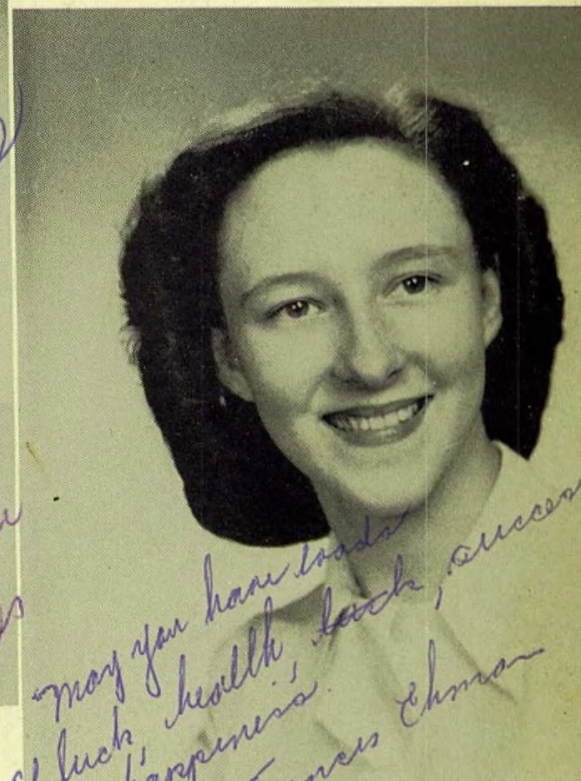 "May you have loads
of luck, health, luck, success
happiness
Frances Ehman